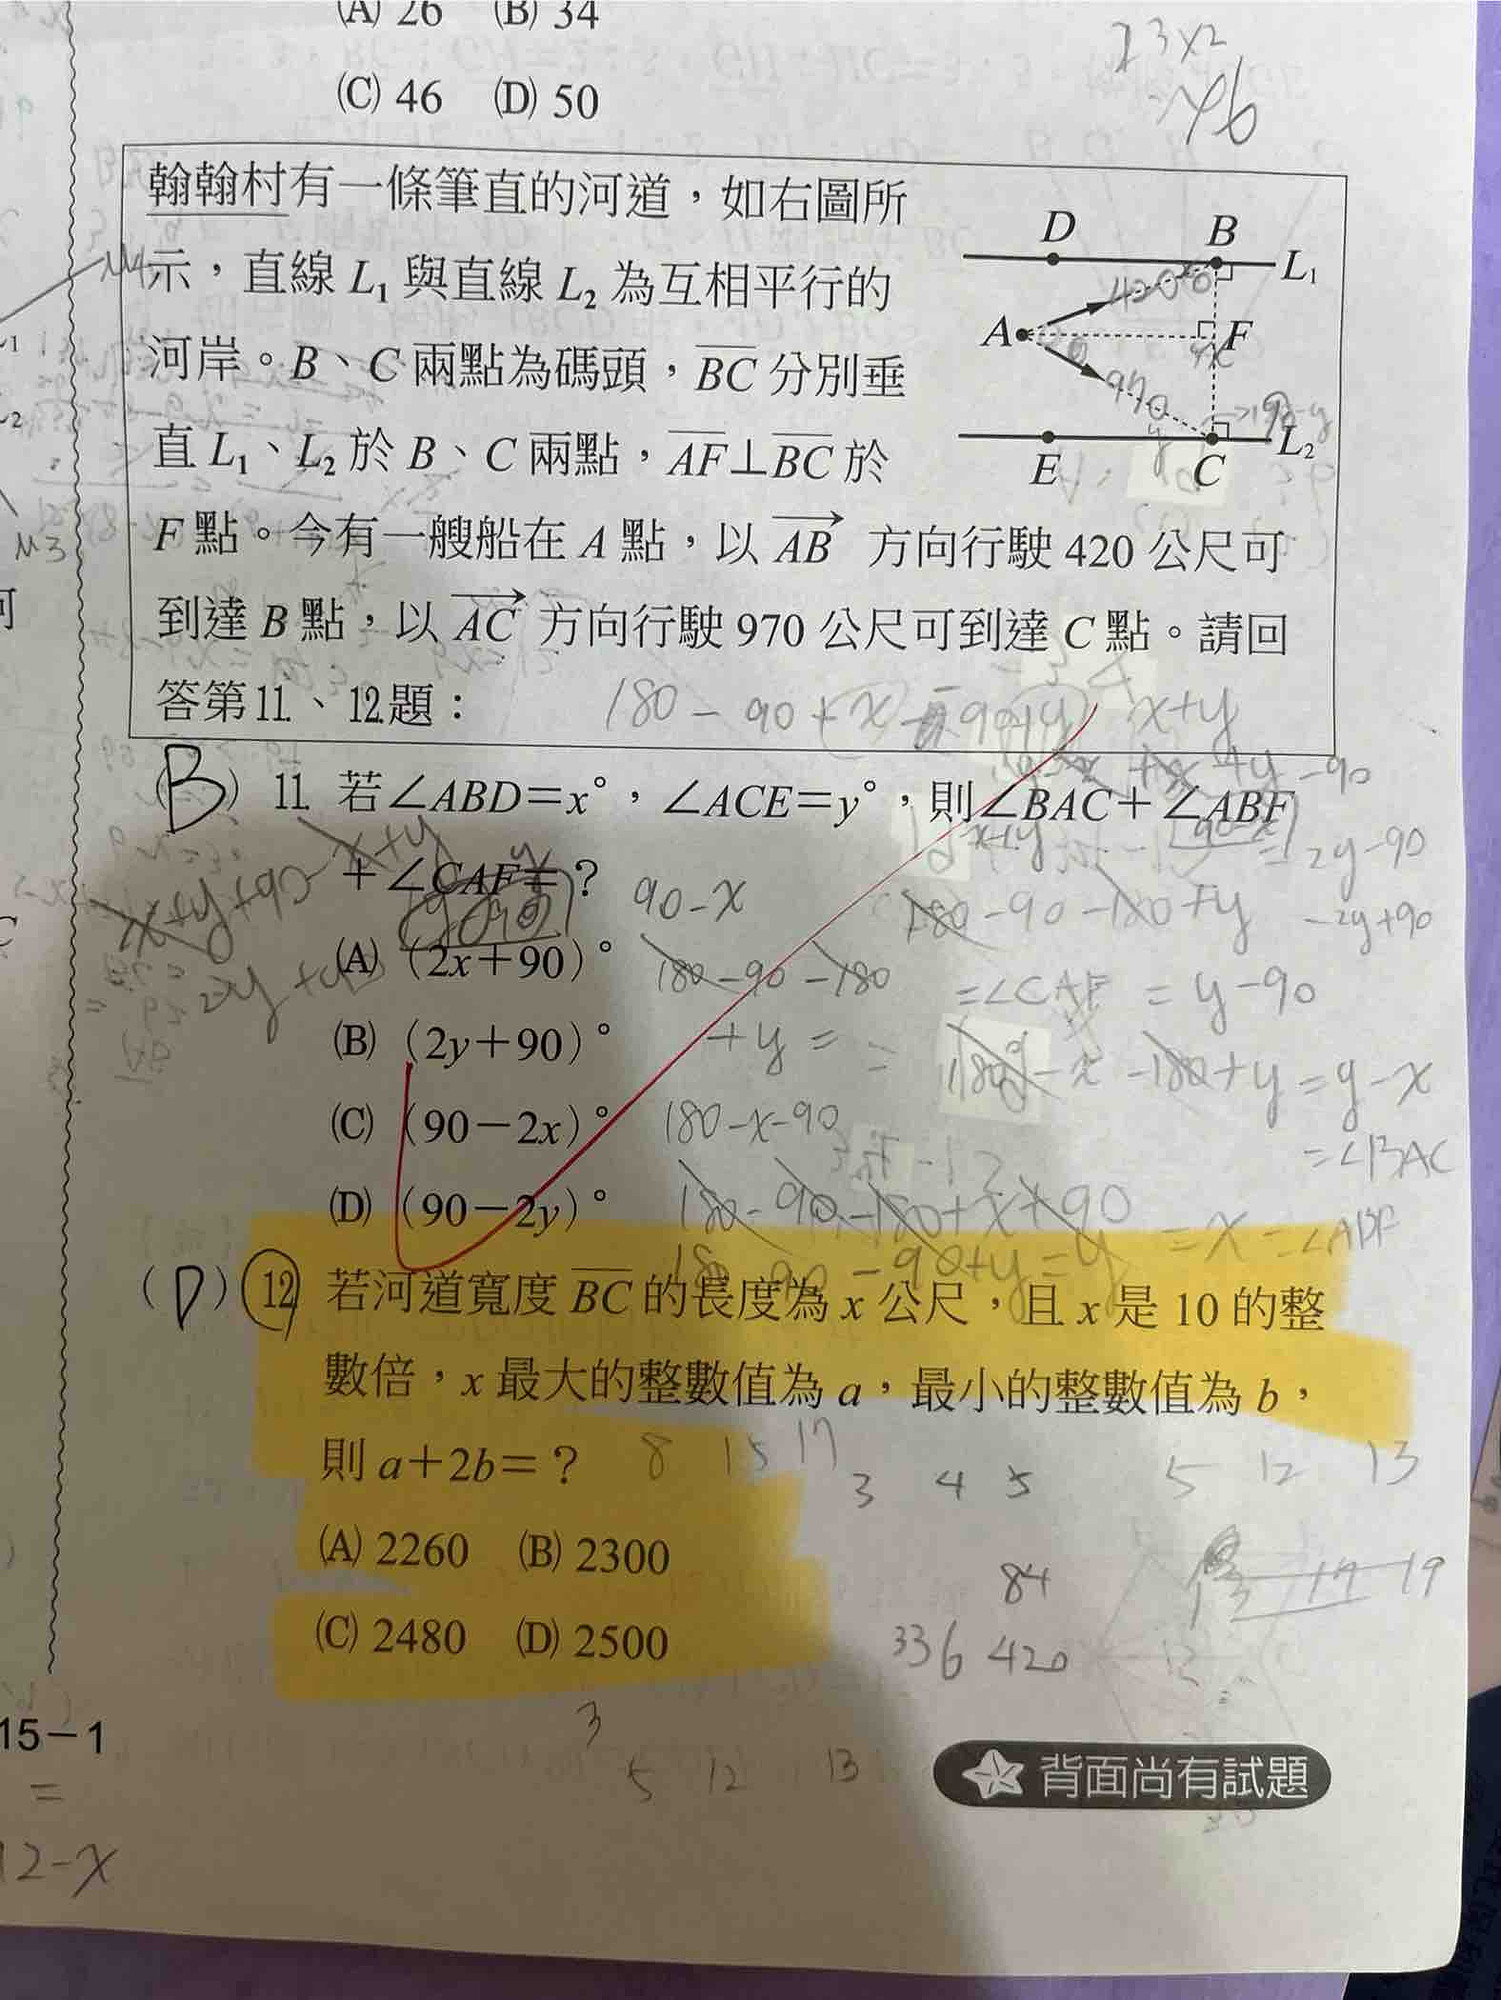 (A) 26 (B) 34
(C) 46 (D) 50
23×2
46
翰翰村有一條筆直的河道，如右圖所
示，直線 L₁ 與直線 L₂ 為互相平行的
河岸。B、C 兩點為碼頭，BC 分別垂
直 L₁、L₂ 於 B、C 兩點，AF⊥BC 於
F 點。今有一艘船在 A 點，以 AB 方向行駛 420 公尺可
到達 B 點，以 AC 方向行駛 970 公尺可到達 C 點。請回
答第11、12題：
D B L₁
420
A F
970
E C L₂
(B) 11. 若∠ABD＝x°，∠ACE＝y°，則∠BAC＋∠ABF
＋∠CAF＝？
(A) (2x＋90)°
(B) (2y＋90)°
(C) (90－2x)°
(D) (90－2y)°
90-x
180-90-180
+y=
180-x-90
=2y-90
-2y+90
=∠CAF = y-90
=y-x
=∠BAC
=x=∠ABF
(D) 12. 若河道寬度 BC 的長度為 x 公尺，且 x 是 10 的整
數倍，x 最大的整數值為 a，最小的整數值為 b，
則 a＋2b＝？
(A) 2260 (B) 2300
(C) 2480 (D) 2500
8 15 17
3 4 5
5 12 13
84
336 420
3
5 12 13
背面尚有試題
15－1
=
12-x